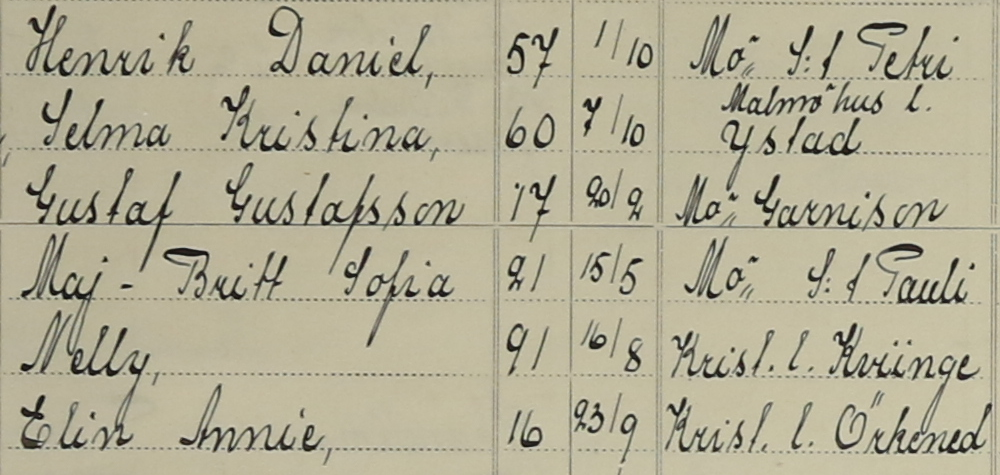 Henrik Daniel, 57 1/10 Mö„ S:t Petri
Malmöhus l.
Selma Kristina, 60 7/10 Ystad
Gustaf Gustafsson 17 20/2 Mö„ Garnison
Maj-Britt Sofia 21 15/5 Mö„ S:t Pauli
Nelly, 91 16/8 Krist. l. Kviinge
Elin Annie, 16 23/9 Krist. l. Örkened